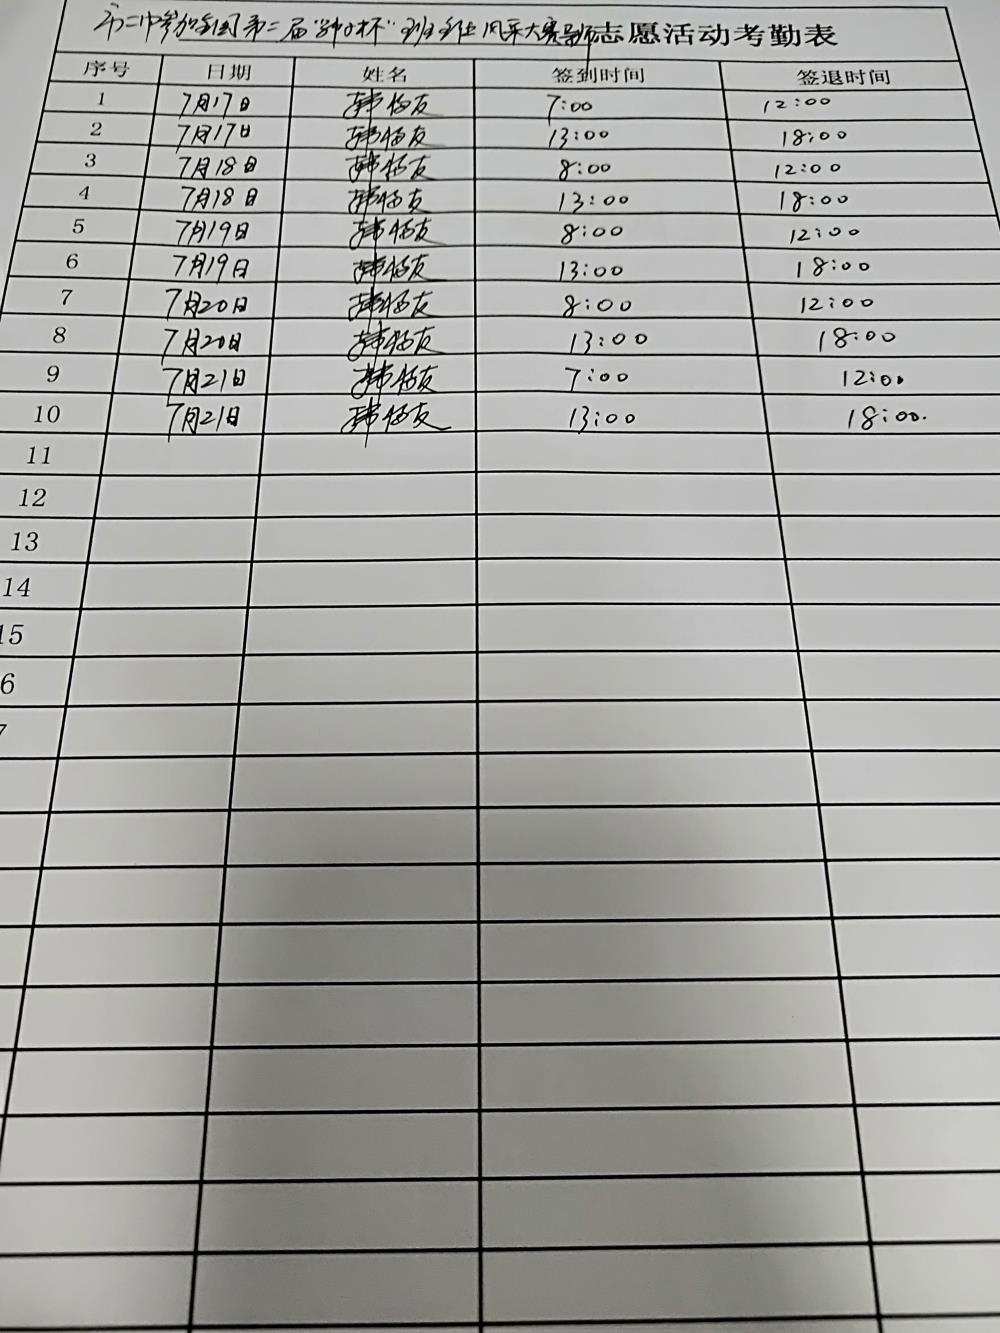 市二中参加全国第二届 杯"班主任风采大赛 志愿活动考勤表
序号 日期 姓名 签到时间 签退时间
1 7月17日 韩 友 7:00 12:00
2 7月17日 韩 友 13:00 18:00
3 7月18日 韩 友 8:00 12:00
4 7月18日 韩 友 13:00 18:00
5 7月19日 韩 友 8:00 12:00
6 7月19日 韩 友 13:00 18:00
7 7月20日 韩 友 8:00 12:00
8 7月20日 韩 友 13:00 18:00
9 7月21日 韩 友 7:00 12:00
10 7月21日 韩 友 13:00 18:00.
11
12
13
14
15
6
7